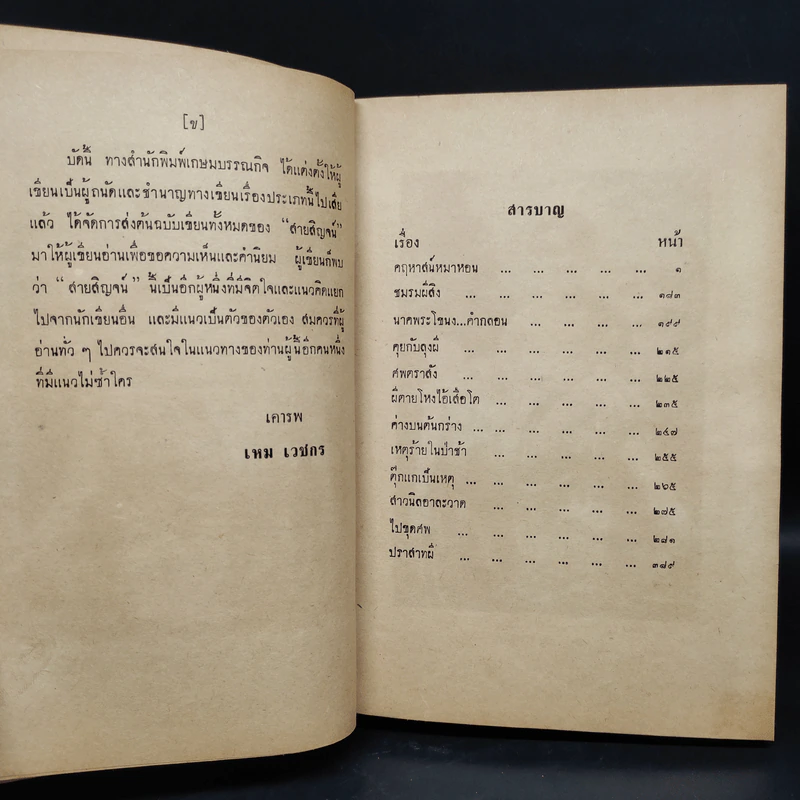 [ข]
บัดนี้ ทางสำนักพิมพ์เกษมบรรณกิจ ได้แต่งตั้งให้ผู้
เขียนเป็นผู้ถนัดและชำนาญทางเขียนเรื่องประเภทนี้ไปเสีย
แล้ว ได้จัดการส่งต้นฉบับเขียนทั้งหมดของ “สายสิญจน์”
มาให้ผู้เขียนอ่านเพื่อขอความเห็นและคำนิยม ผู้เขียนก็พบ
ว่า “สายสิญจน์” นี้เป็นอีกผู้หนึ่งที่มีจิตใจและแนวคิดแยก
ไปจากนักเขียนอื่น และมีแนวเป็นตัวของตัวเอง สมควรที่ผู้
อ่านทั่ว ๆ ไปควรจะสนใจในแนวทางของท่านผู้นี้อีกคนหนึ่ง
ที่มีแนวไม่ซ้ำใคร
เคารพ
เหม เวชกร
สารบาญ
เรื่อง หน้า
คฤหาสน์หมาหอน ... ... ... ... ... ๑
ชมรมผีสิง ... ... ... ... ... ... ๑๘๓
นาคพระโขนง...คำกลอน ... ... ... ... ๑๙๙
คุยกับลุงผี ... ... ... ... ... ... ๒๑๕
ศพตราสัง ... ... ... ... ... ... ๒๒๕
ผีตายโหงไอ้เสือโต ... ... ... ... ... ๒๓๕
ค่างบนต้นกร่าง ... ... ... ... ... ... ๒๔๗
เหตุร้ายในป่าช้า ... ... ... ... ... ๒๕๕
ตุ๊กแกเป็นเหตุ ... ... ... ... ... ... ๒๖๕
สาวนิลอาละวาด ... ... ... ... ... ๒๗๕
ไปขุดศพ ... ... ... ... ... ... ๒๘๑
ปราสาทผี ... ... ... ... ... ... ๓๘๙